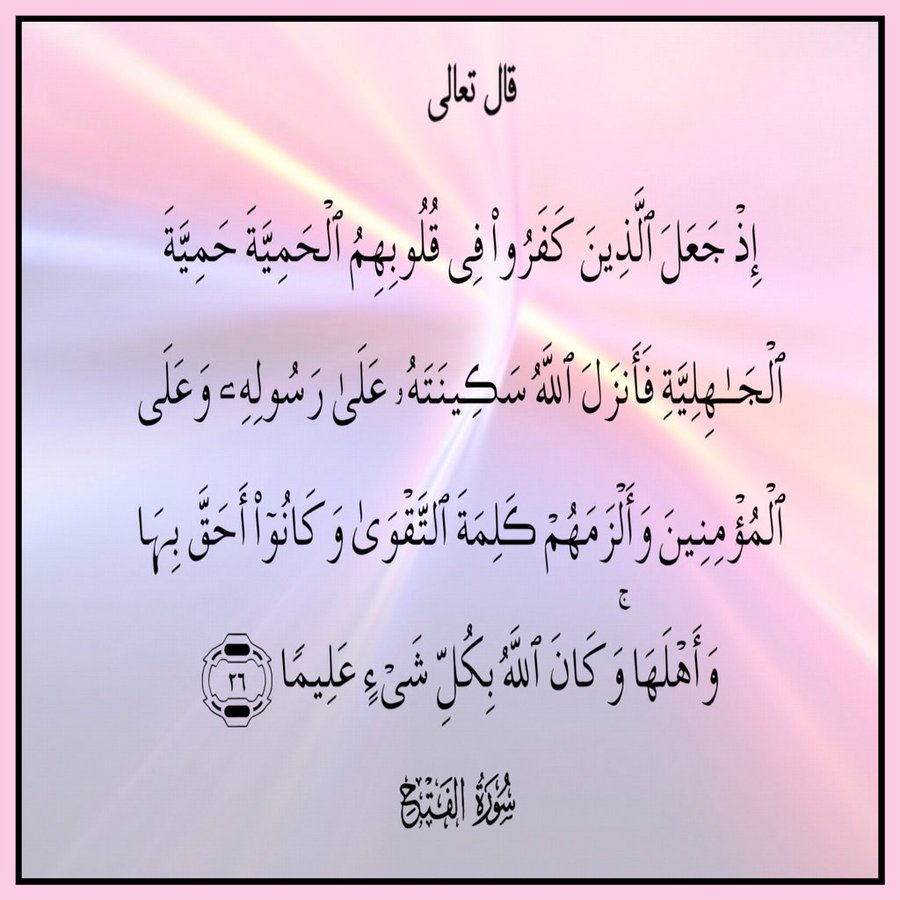 قال تعالى
إِذْ جَعَلَ ٱلَّذِينَ كَفَرُوا۟ فِى قُلُوبِهِمُ ٱلْحَمِيَّةَ حَمِيَّةَ
ٱلْجَـٰهِلِيَّةِ فَأَنزَلَ ٱللَّهُ سَكِينَتَهُۥ عَلَىٰ رَسُولِهِۦ وَعَلَى
ٱلْمُؤْمِنِينَ وَأَلْزَمَهُمْ كَلِمَةَ ٱلتَّقْوَىٰ وَكَانُوٓا۟ أَحَقَّ بِهَا
وَأَهْلَهَا ۚ وَكَانَ ٱللَّهُ بِكُلِّ شَىْءٍ عَلِيمًا ٢٦
سُورَةُ الفَتْحِ